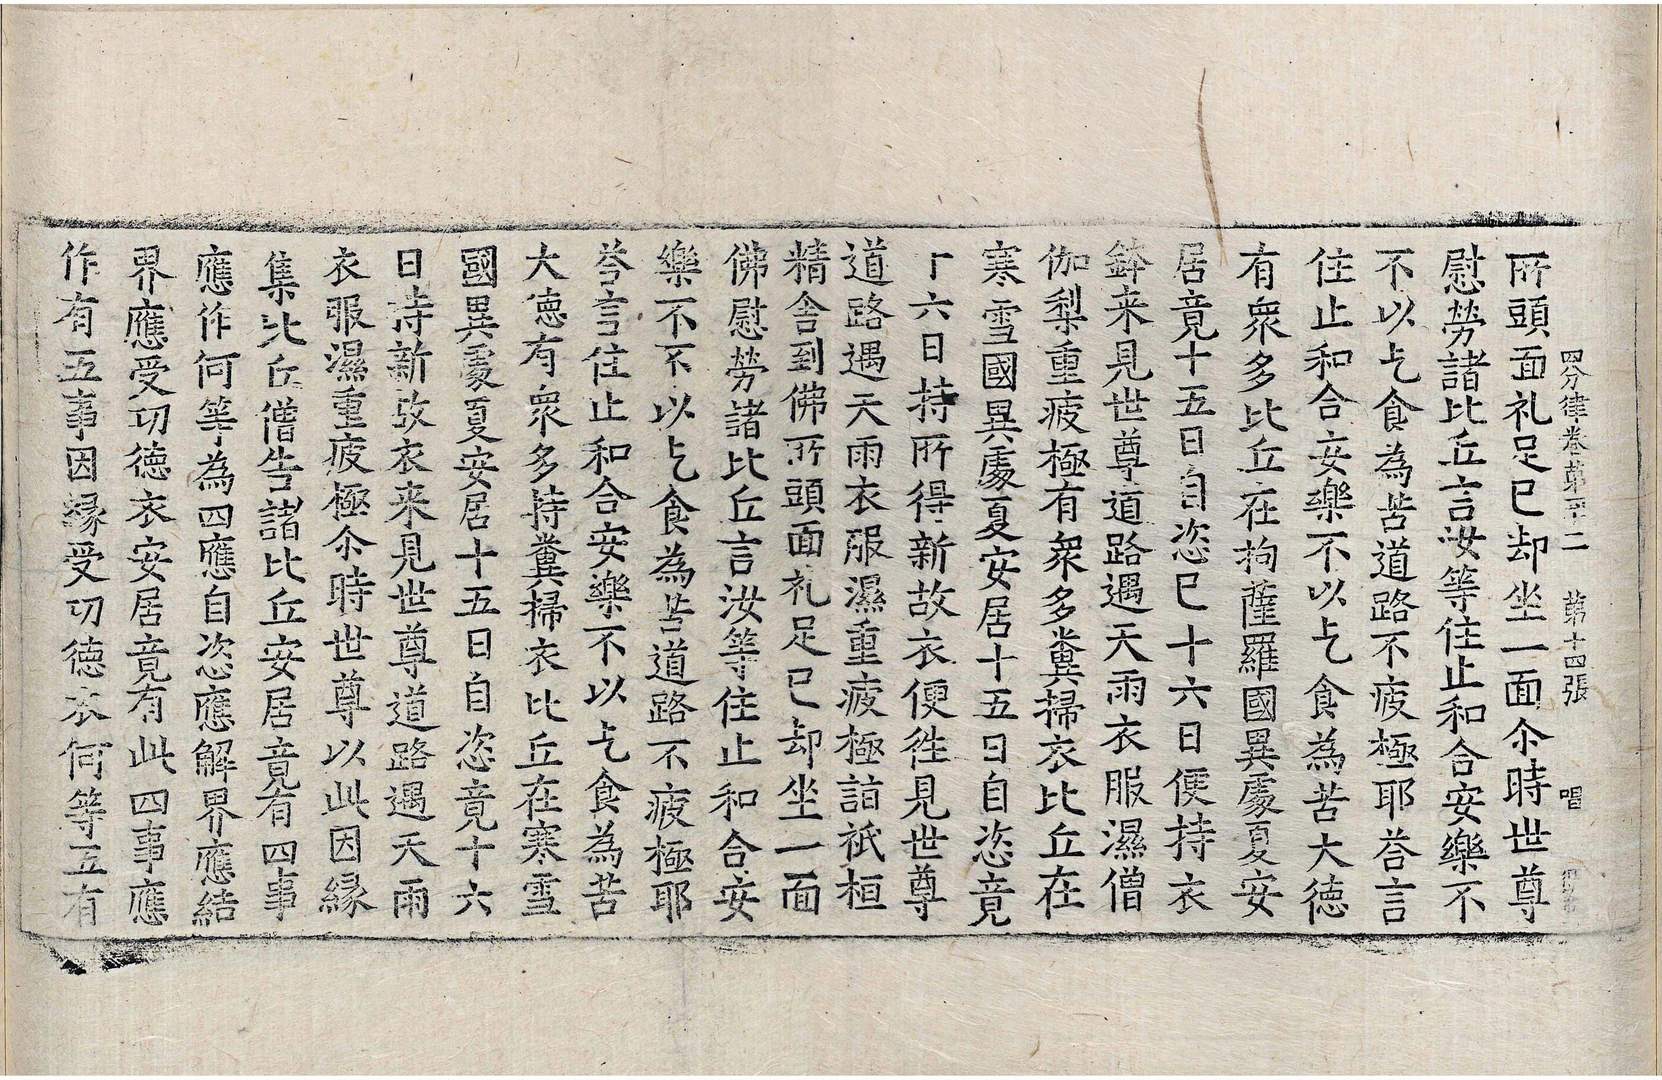 四分律卷第四十二 第十四張 唱
所頭面礼足已却坐一面尒時世尊
慰勞諸比丘言汝等住止和合安樂不
不以乞食為苦道路不疲極耶荅言
住止和合安樂不以乞食為苦大德
有衆多比丘在拘薩羅國異處夏安
居竟十五日自恣已十六日便持衣
鉢来見世尊道路遇天雨衣服濕僧
伽梨重疲極有衆多糞掃衣比丘在
寒雪國異處夏安居十五日自恣竟
十六日持所得新故衣便徃見世尊
道路遇天雨衣服濕重疲極詣祇桓
精舍到佛所頭面礼足已却坐一面
佛慰勞諸比丘言汝等住止和合安
樂不不以乞食為苦道路不疲極耶
荅言住止和合安樂不以乞食為苦
大德有衆多持糞掃衣比丘在寒雪
國異處夏安居十五日自恣竟十六
日持新故衣来見世尊道路遇天雨
衣服濕重疲極尒時世尊以此因縁
集比丘僧告諸比丘安居竟有四事
應作何等為四應自恣應解界應結
界應受功德衣安居竟有此四事應
作有五事因縁受功德衣何等五有